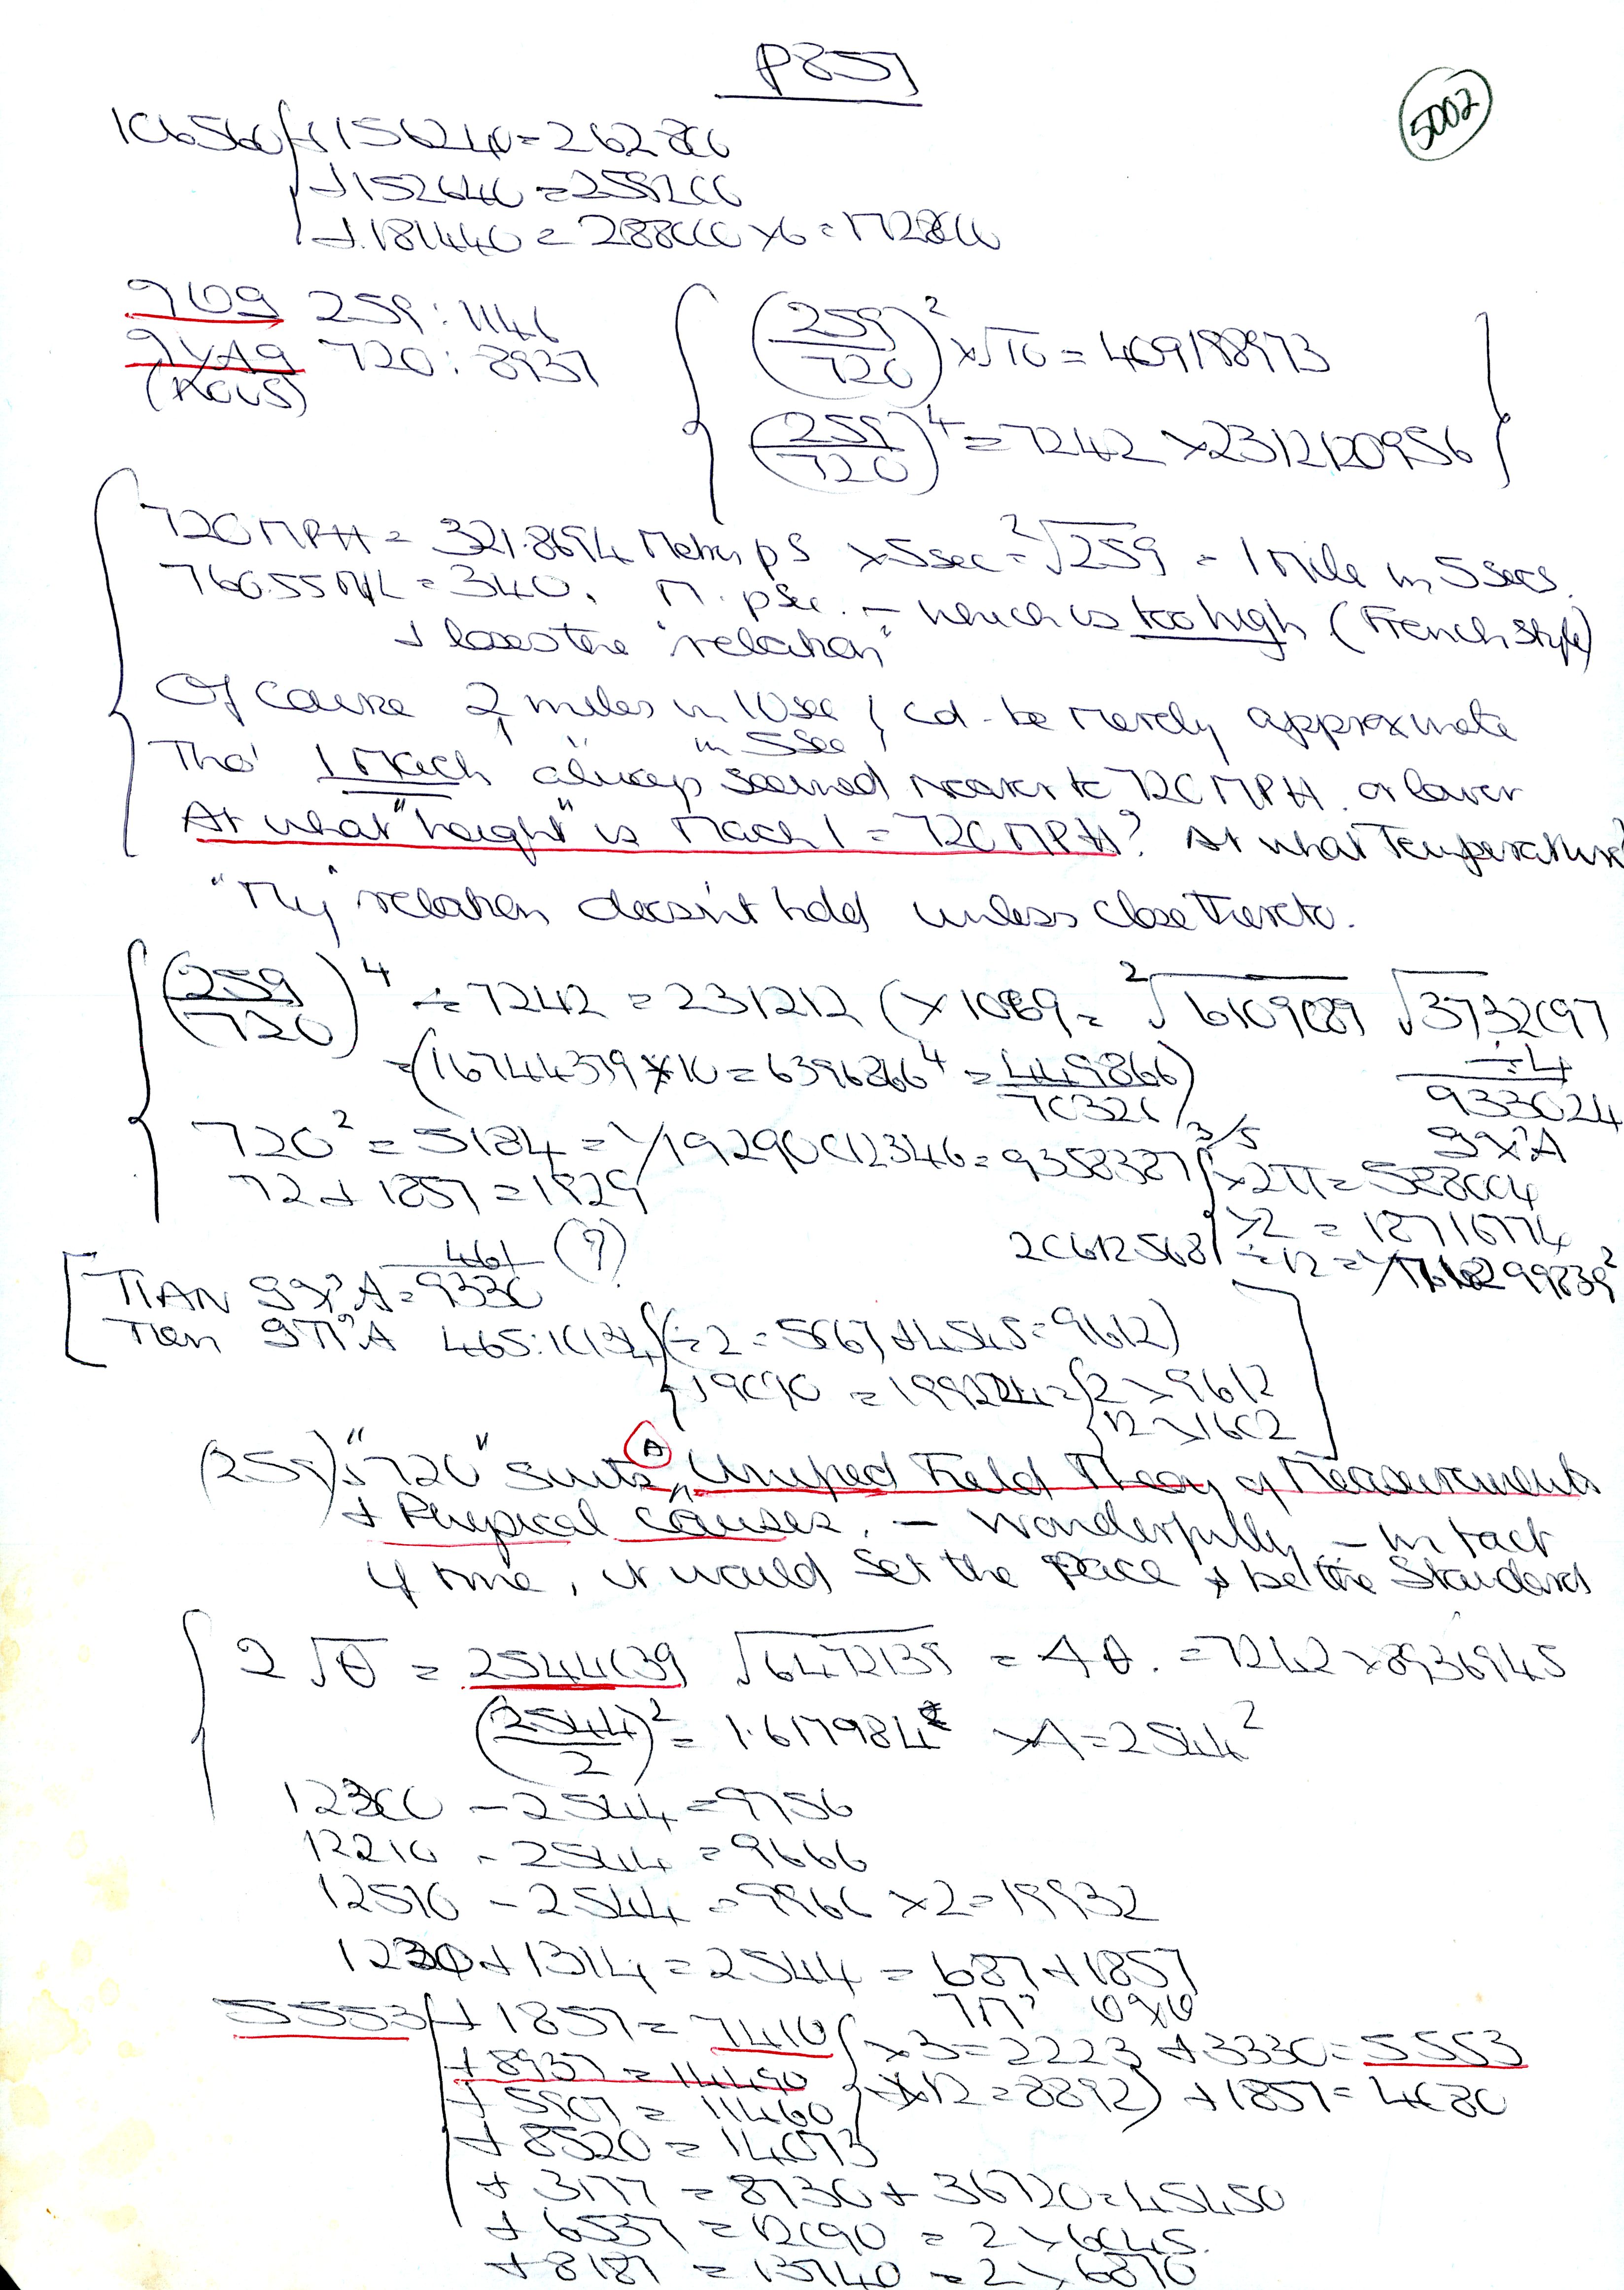 P857
5002
106560 + 156240 = 262800
+ 152640 = 259200
+ 181440 = 288000 x 6 = 1728000
259 : 1146
720 : 8937
(259/720)² x √10 = 409198973
(259/720)⁴ = 7242 x 2312120956
720 MPH = 321.8694 Metres pS x 5sec = ²√259 = 1 Mile in 5 secs.
760.55 M/L = 340. M. pSec. - which is too high (French Style)
+ loses the "relation"
Of Course 2 miles in 10 sec / cd - be merely approximate
1 " in 5 sec
Tho' 1 Mach always seemed nearer to 720 MPH. or lower
At what "height" is Mach 1 = 720 MPH? At what Temperature?
"My" relation doesn't hold unless close thereto.
(259/720)⁴ ÷ 7242 = 231212 ( x 1069 = ²√6109089 √3732097
= (16744379 x 10 = 6396266⁴ = 449866/70326) ÷ 4
933024
720² = 5184 = 1/19290012346 = 9358387 3/5 x 2π = 588004
72 + 1857 = 1929
x 2 = 18716774
20612568 ÷ 12 = 1/1716299839²
461 (?)
TIAN 9X²A = 9330
Tian 9π²A 465 : 10134 (÷ 2 = 5067 + 4545 = 9612)
+ 9090 = 19224 = 2 x 9612
12 x 1602
(259) : "720" suits A Unified Field Theory of Measurements
+ Physical Causes. - Wonderfully - in fact
if true, it would set the Pace & be the Standard
2√θ = 2544039 √6472135 = 4θ. = 7242 x 8936945
(2544/2)² = 1.617984 x 4 = 2544²
12300 - 2544 = 9756
12210 - 2544 = 9666
12510 - 2544 = 9966 x 2 = 19932
1230 + 1314 = 2544 = 687 + 1857
5553 + 1857 = 7410 x 3 = 2223 + 3330 = 5553
+ 8937 = 14490 x 12 = 8892) + 1857 = 4080
+ 5907 = 11460
+ 8520 = 14073
+ 3177 = 8730 + 36720 = 45450
+ 6537 = 12090 = 2 x 6045
+ 8187 = 13740 = 2 x 6870